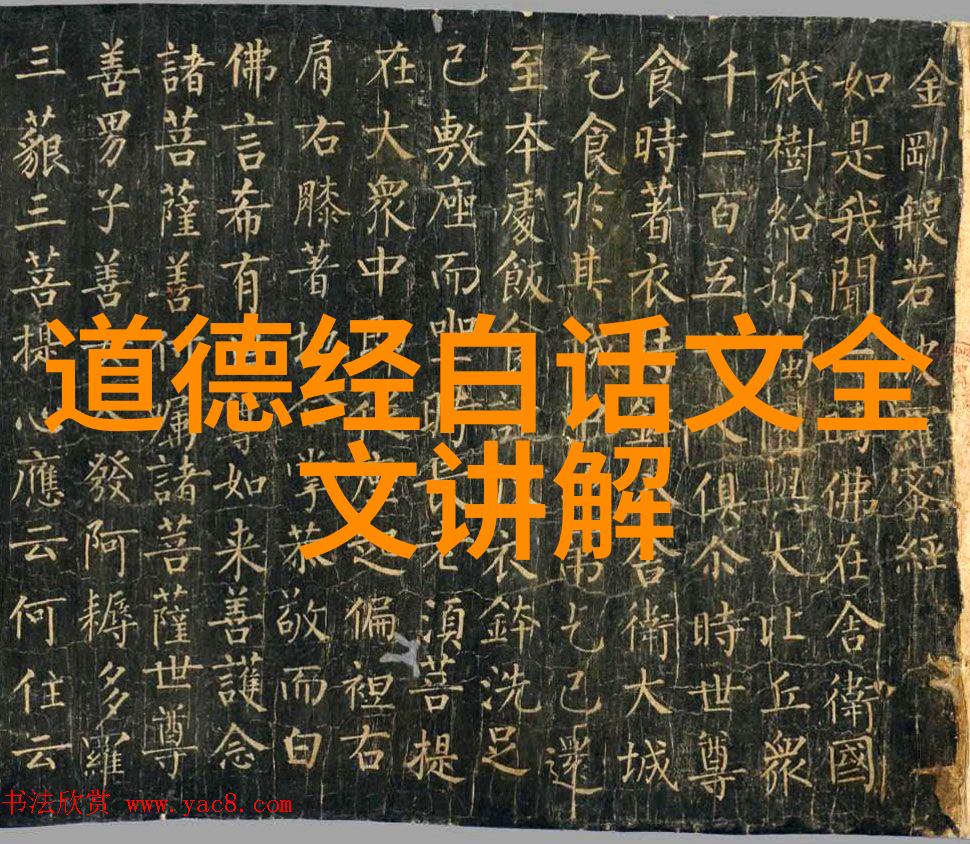 道德经白话文全
文讲解
金剛般若波蜜經
如是我聞時佛在舍衛國
祇樹給孤獨園與大比丘眾
千二百五人俱尒時世尊
食時著衣持舍衛大城
乞食於其城乞已還
至本處飯食衣鉢洗足
已敷座而坐時長老須菩提
在大眾中座偏袒右
肩右膝著地掌恭敬而白
佛言希有世尊如来善護念
諸菩薩善付囑諸菩薩世尊
善男子善人發阿耨多羅
三藐三菩提心應云何住云
书法欣赏 www.yac8.com